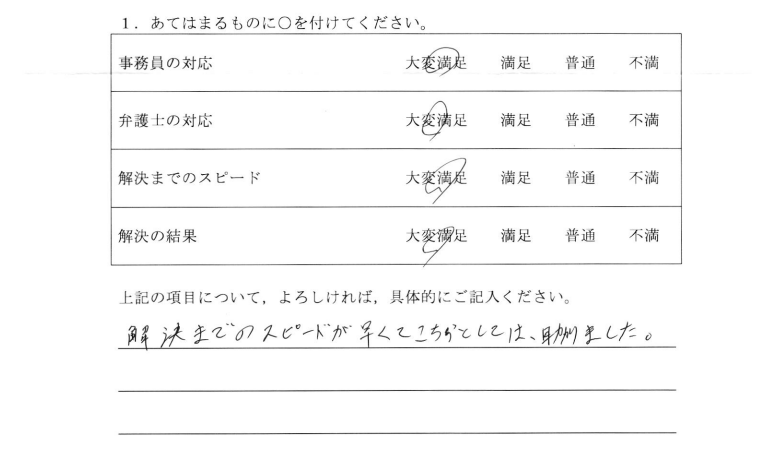 1．あてはまるものに○を付けてください。
事務員の対応 大変満足 満足 普通 不満
弁護士の対応 大変満足 満足 普通 不満
解決までのスピード 大変満足 満足 普通 不満
解決の結果 大変満足 満足 普通 不満
上記の項目について，よろしければ，具体的にご記入ください。
解決までのスピードが早くてこちらとしては、助かりました。